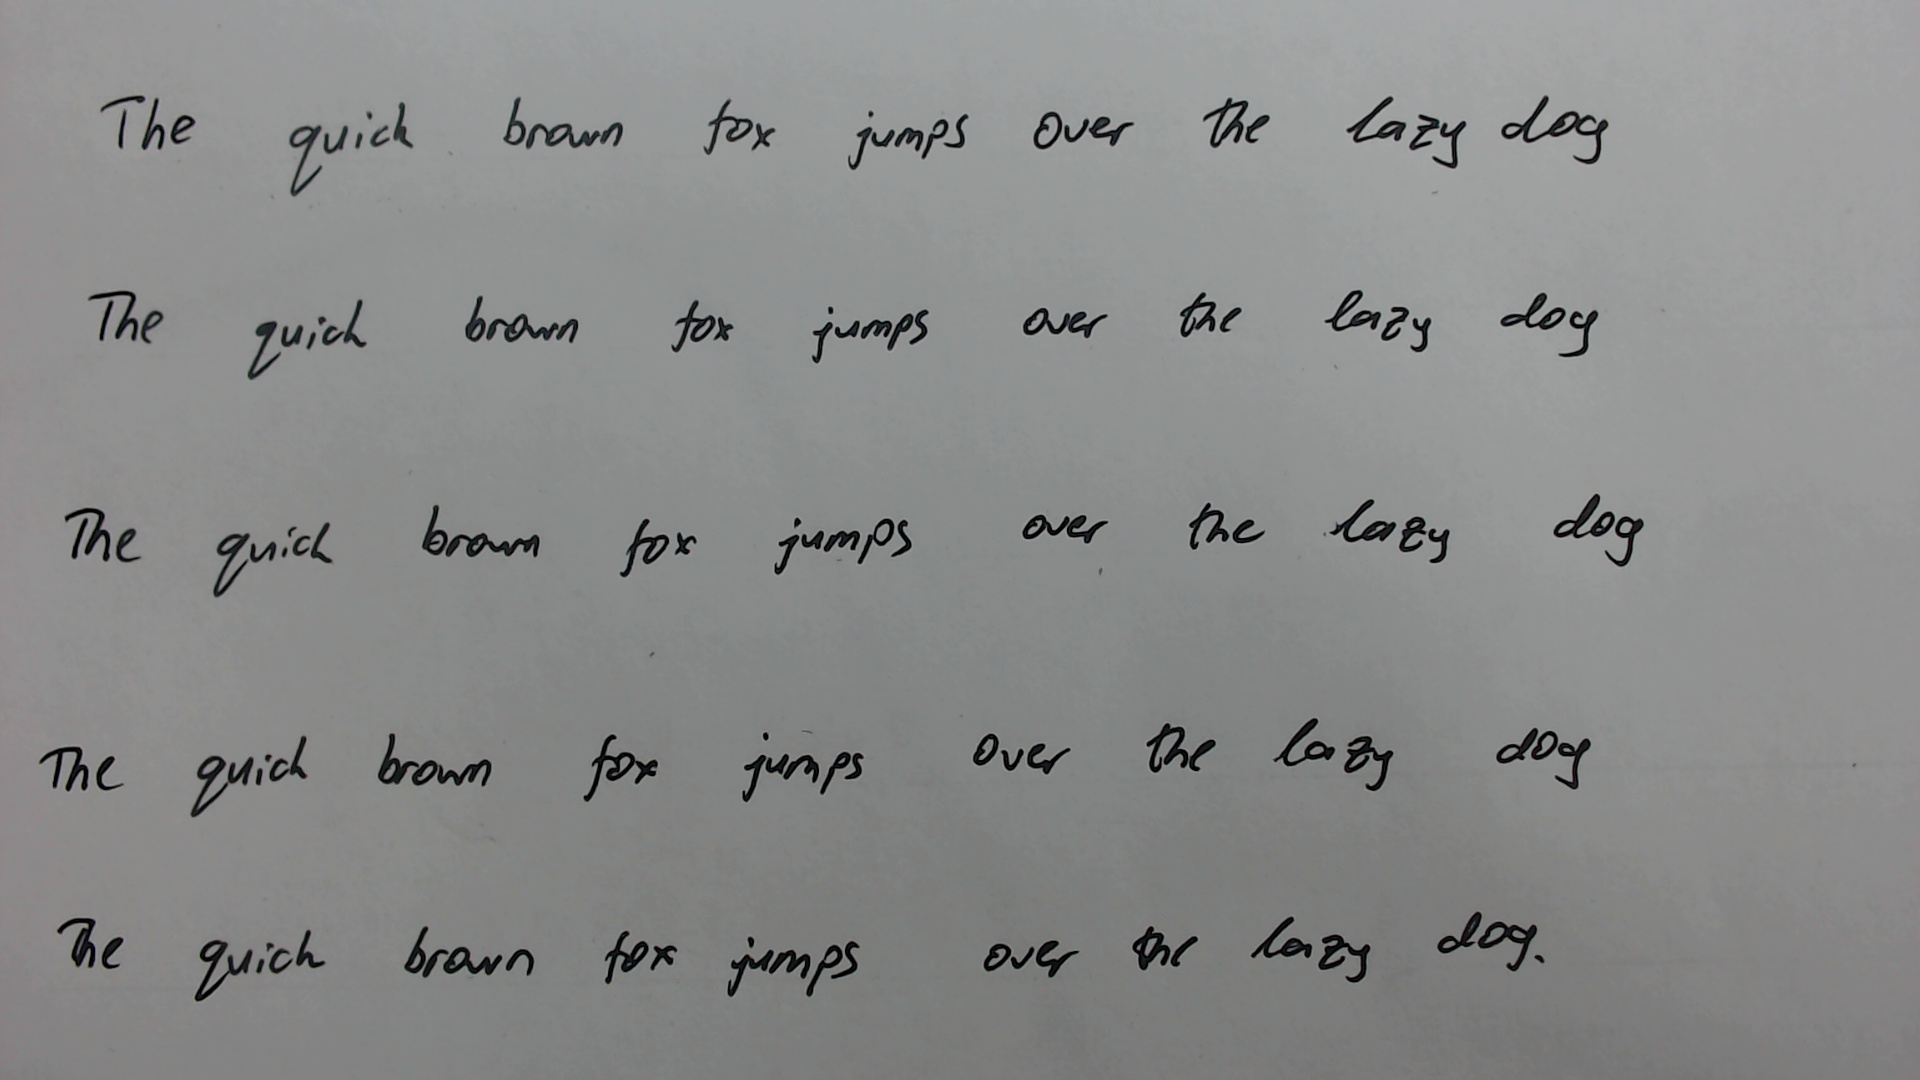 The quick brown fox jumps over the lazy dog
The quick brown fox jumps over the lazy dog
The quick brown fox jumps over the lazy dog
The quick brown fox jumps over the lazy dog
The quick brown fox jumps over the lazy dog.